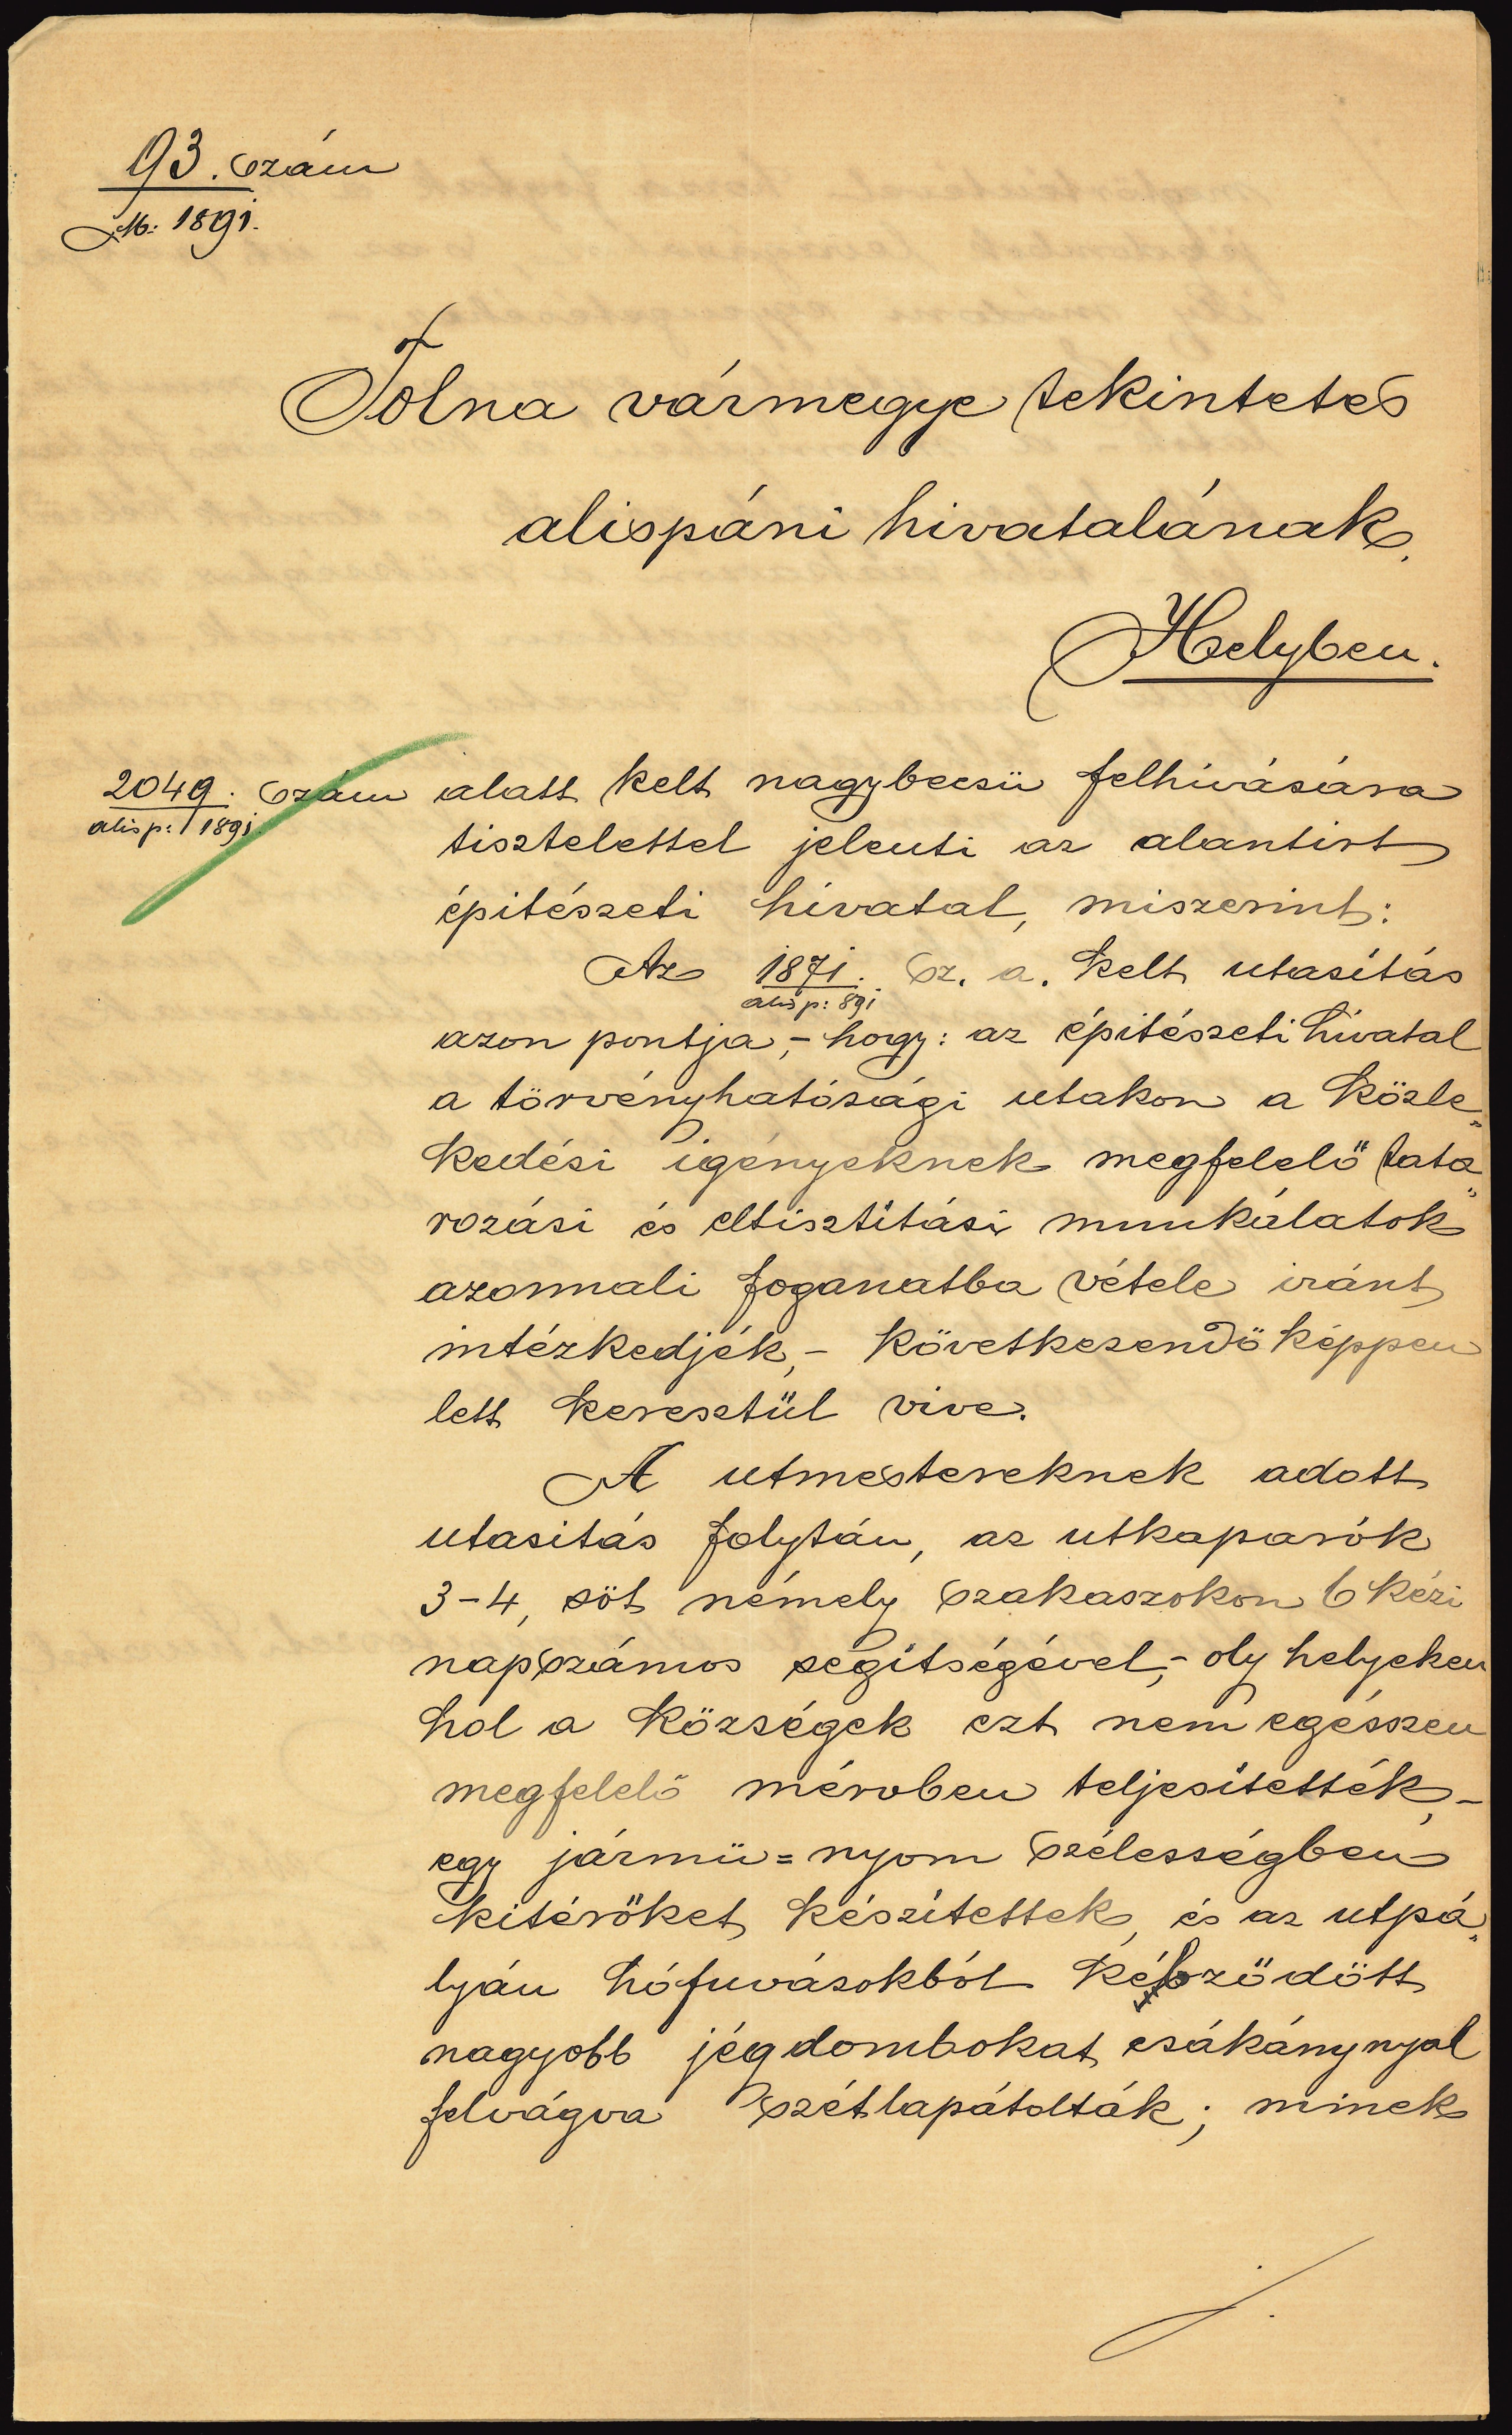 93. szám
M: 1891.
Tolna vármegye tekintetes
alispáni hivatalának.
Helyben.
2049. szám alatt kelt nagybecsü felhivására
alisp: 1891.
tisztelettel jelenti az alantirt
épitészeti hivatal, miszerint:
Az 1871. sz. a. kelt utasitás
alisp: 891
azon pontja, - hogy: az épitészeti hivatal
a törvényhatósági utakon a közle„
kedési igényeknek megfelelő tata„
rozási és eltisztitási munkálatok
azonnali foganatba vétele iránt
intézkedjék, - következendöképpen
lett keresztül vive.
A utmestereknek adott
utasitás folytán, az utkaparók
3-4, söt némely szakaszokon 6 kézi
napszámos segitségével, - oly helyeken
hol a községek ezt nem egészen
megfelelő mérvben teljesitették, -
egy jármü=nyom szélességben
kitérőket készitettek, és az utpá„
lyán hófuvásokból képződött
nagyobb jégdombokat csákánynyal
felvágva szétlapátolták; minek